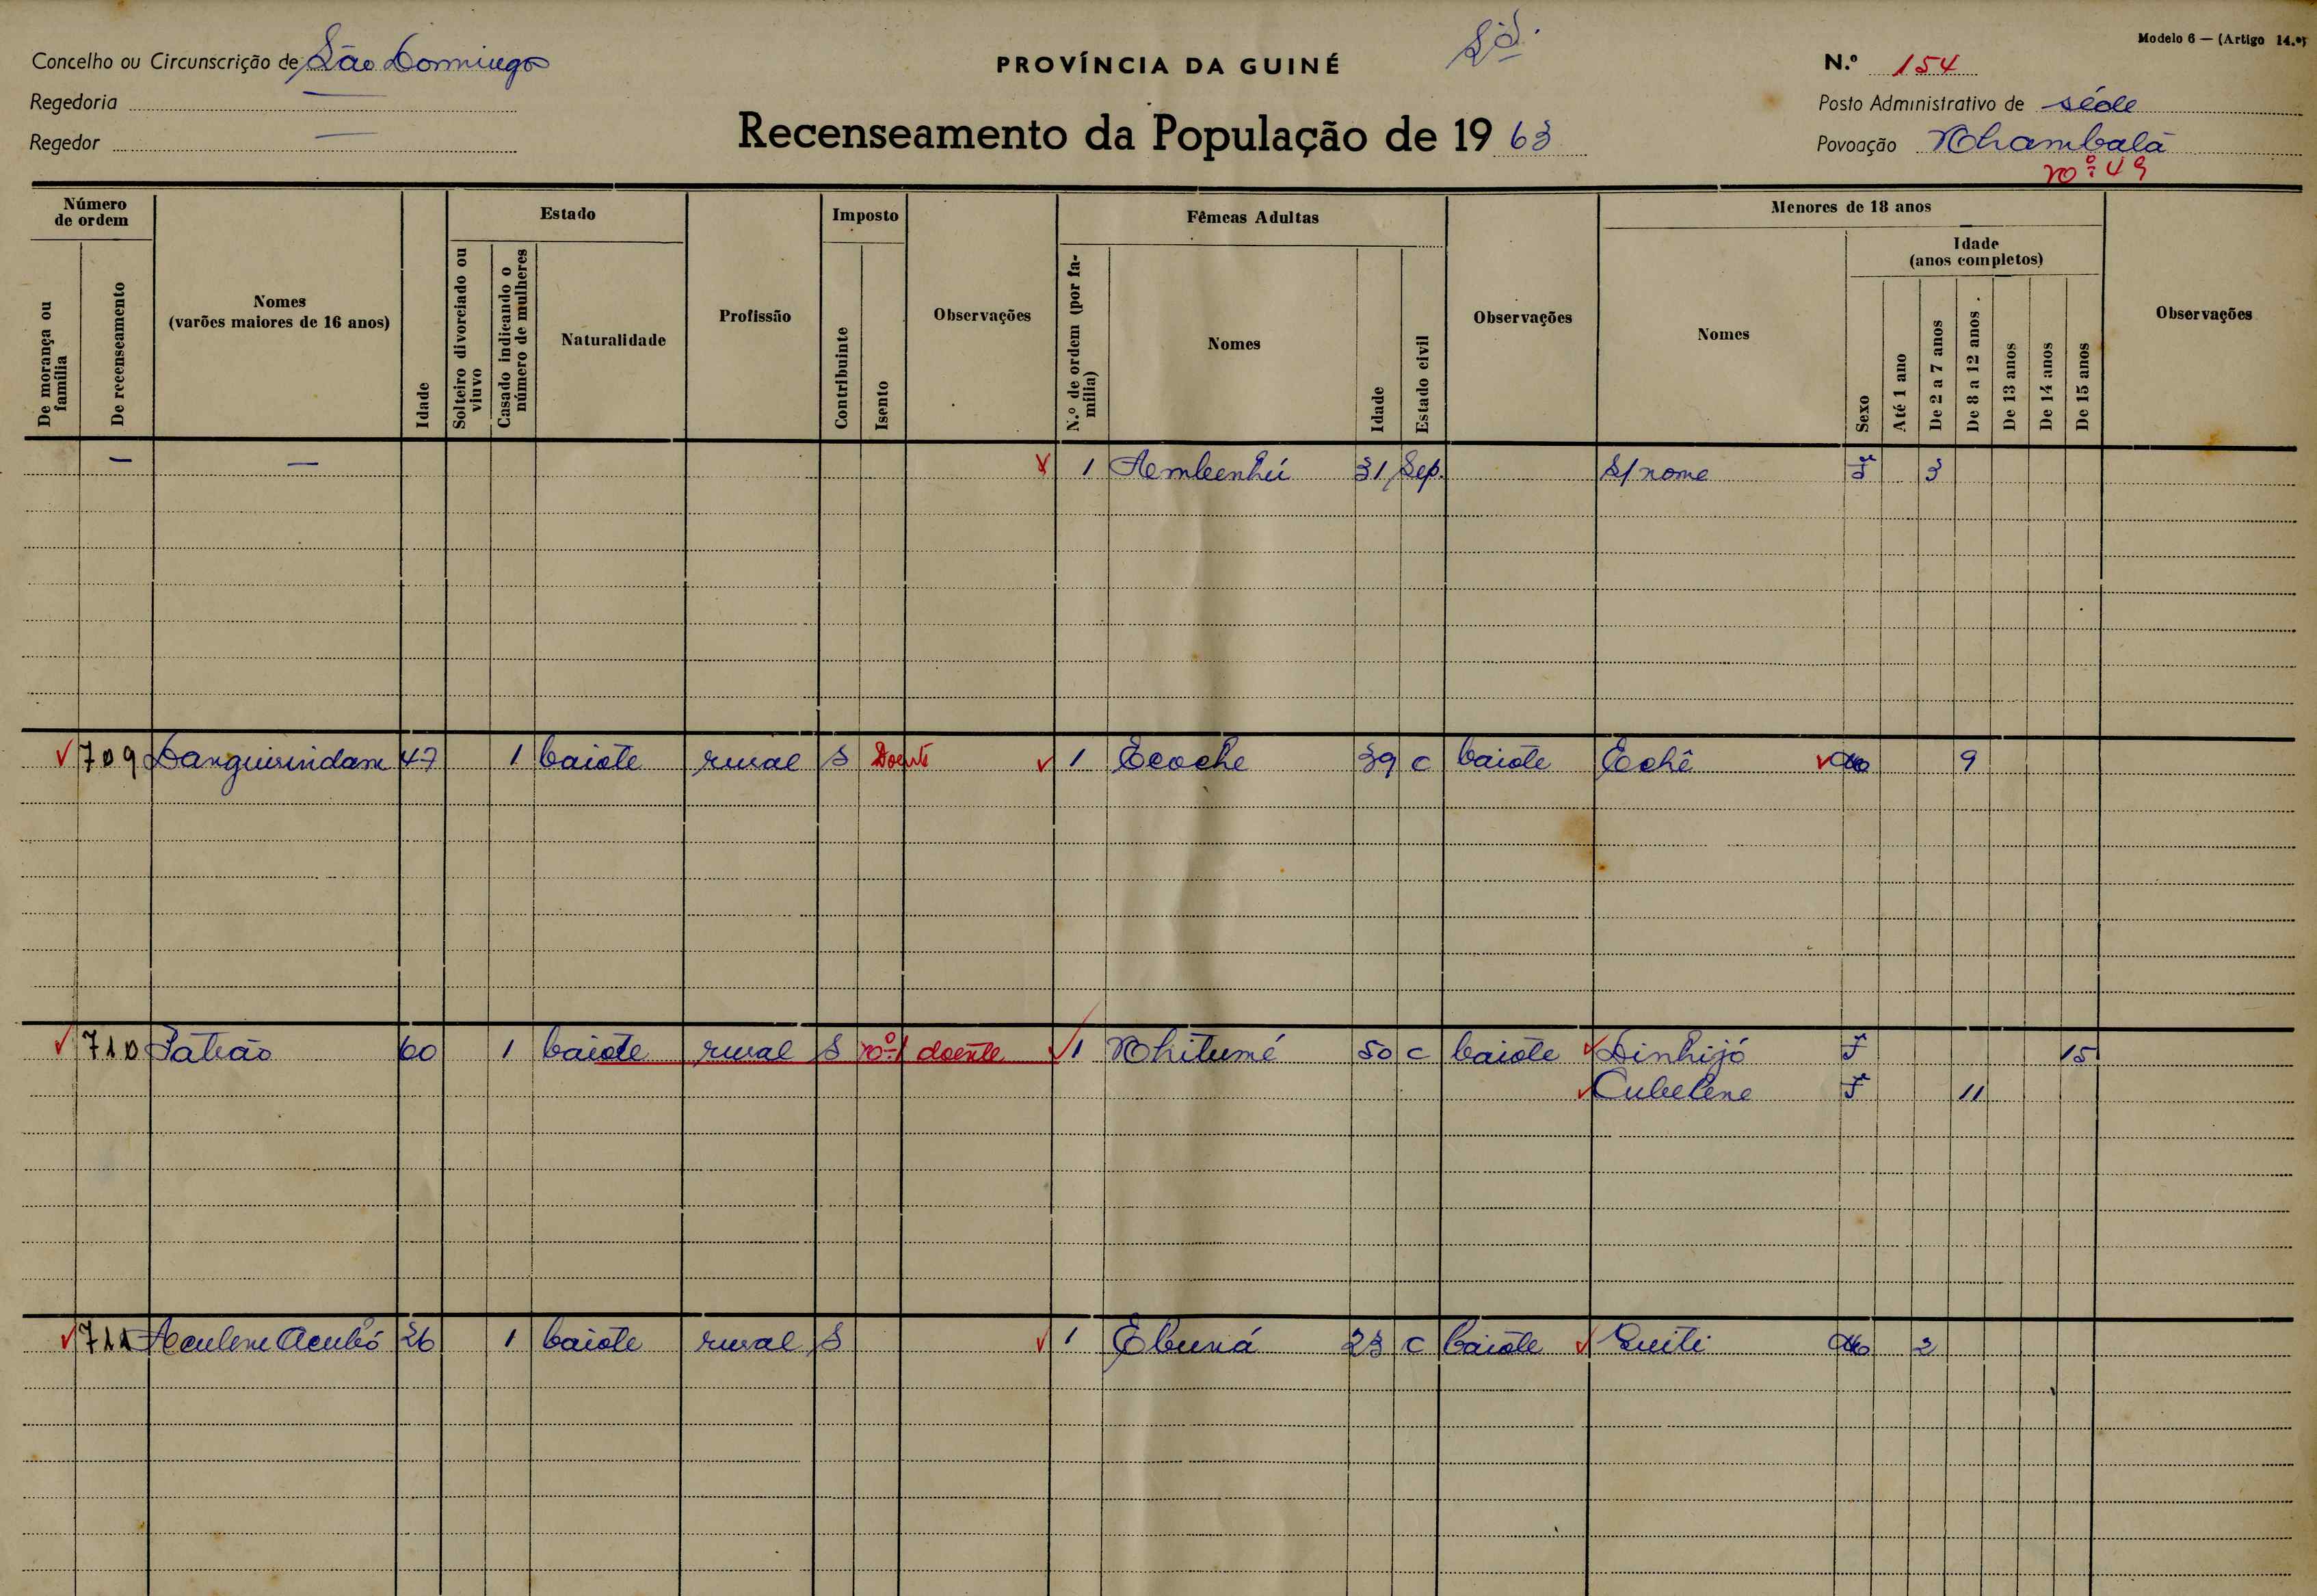 Modelo 6 — (Artigo 14.º)
Concelho ou Circunscrição de São Domingos
PROVÍNCIA DA GUINÉ
N.º 154
Regedoria —
Posto Administrativo de séde
Regedor —
Recenseamento da População de 1963
Povoação Nhambalã
nº 49
Número de ordem
De morança ou família
De recenseamento
Nomes (varões maiores de 16 anos)
Idade
Estado
Solteiro divorciado ou viuvo
Casado indicando o número de mulheres
Naturalidade
Profissão
Imposto
Contribuinte
Isento
Observações
Fêmeas Adultas
N.º de ordem (por família)
Nomes
Idade
Estado civil
Observações
Menores de 18 anos
Nomes
Sexo
Idade (anos completos)
Até 1 ano
De 2 a 7 anos
De 8 a 12 anos
De 13 anos
De 14 anos
De 15 anos
Observações
— — 1 31 Sep. S/nome F 3
709 47 1 baiote rural S Doente 1 Ecoche 39 c baiote Echê 9
710 60 1 baiote rural S nº 1 doente 1 Nhitumé 50 c baiote Dinhijó F 15
Cubelene F 11
711 26 1 baiote rural S 1 Ebuná 23 c baiote Guiti 2